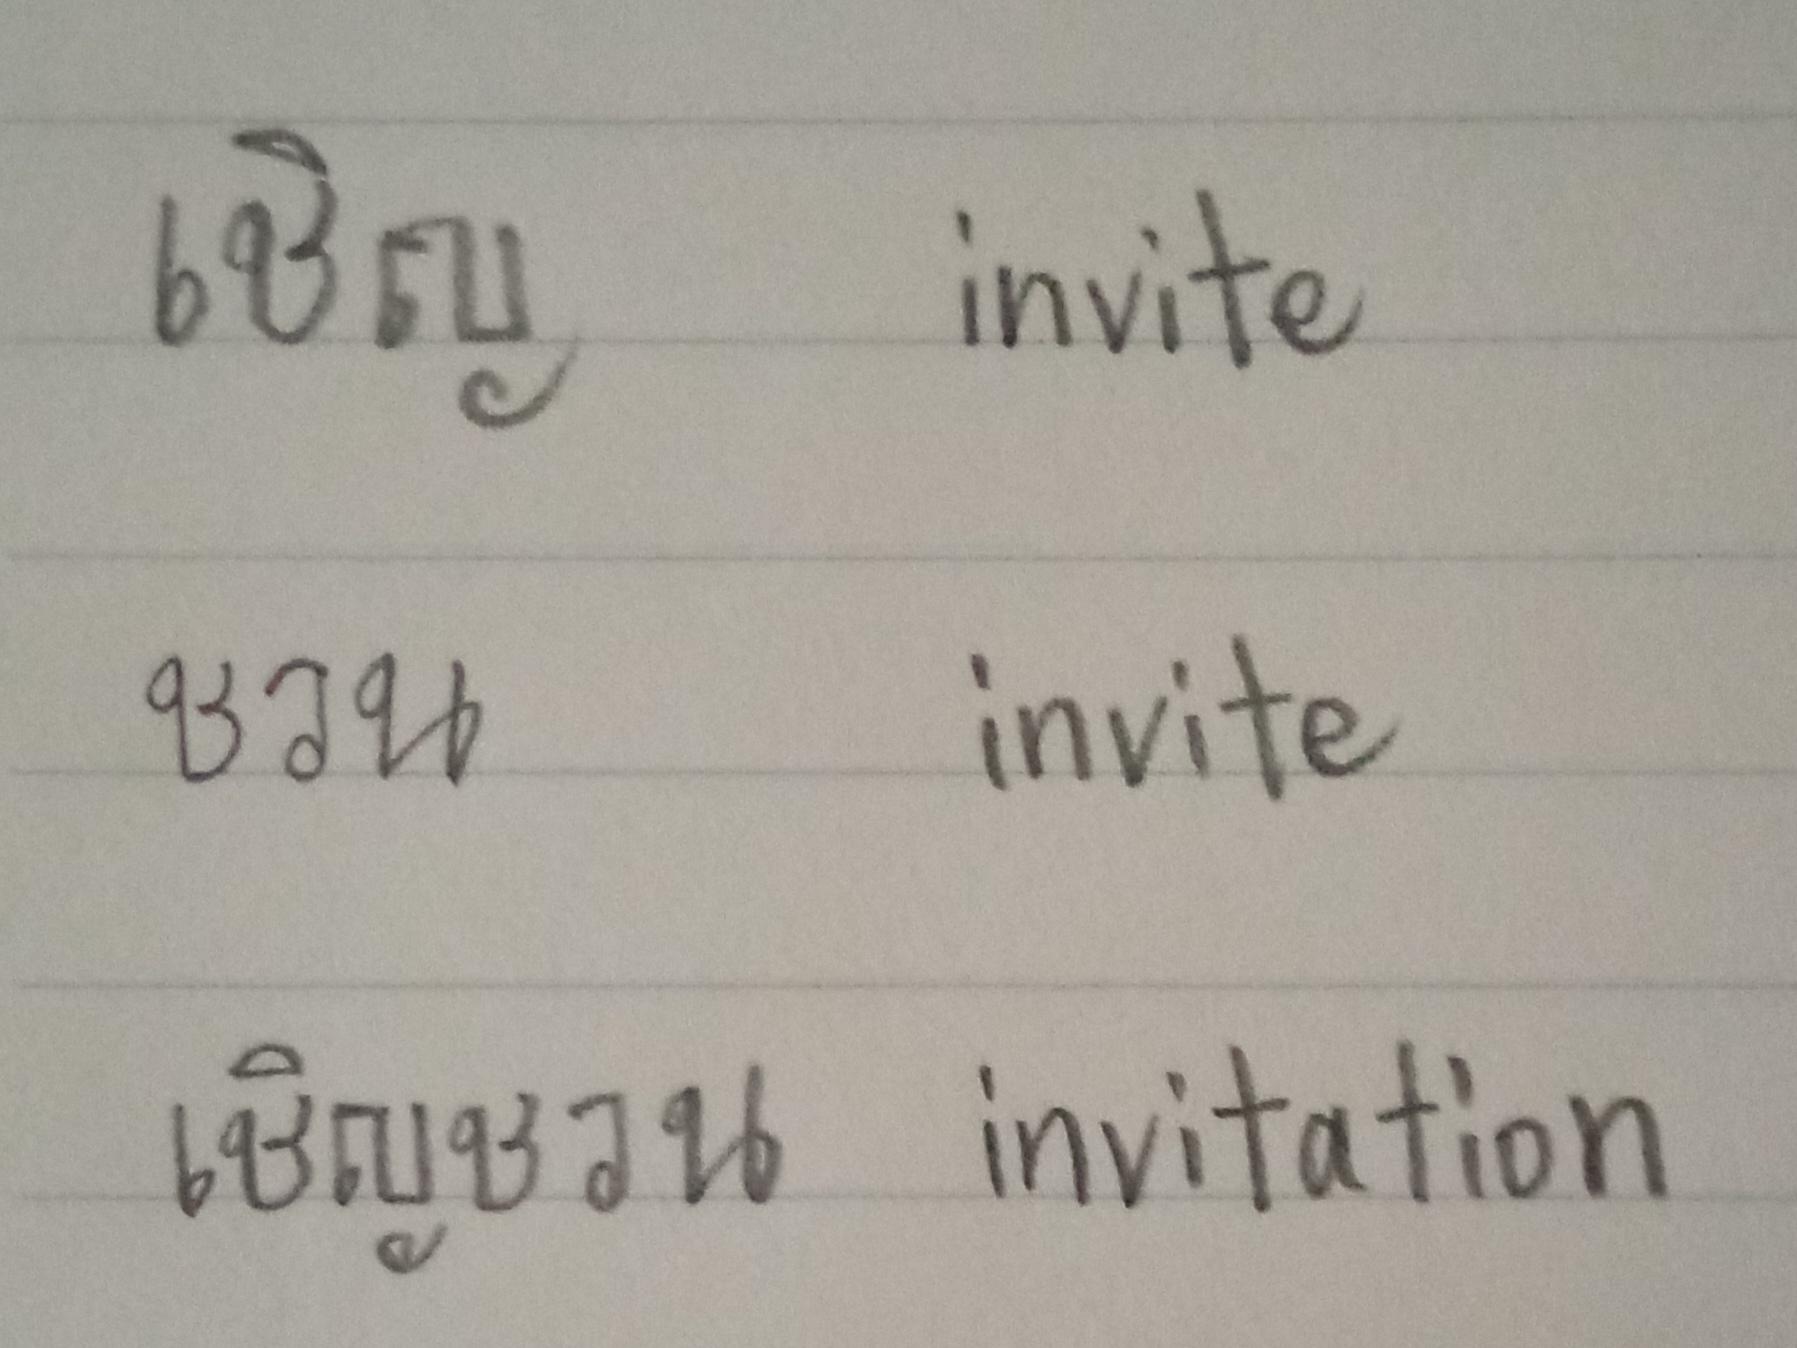 เชิญ invite
ชวน invite
เชิญชวน invitation